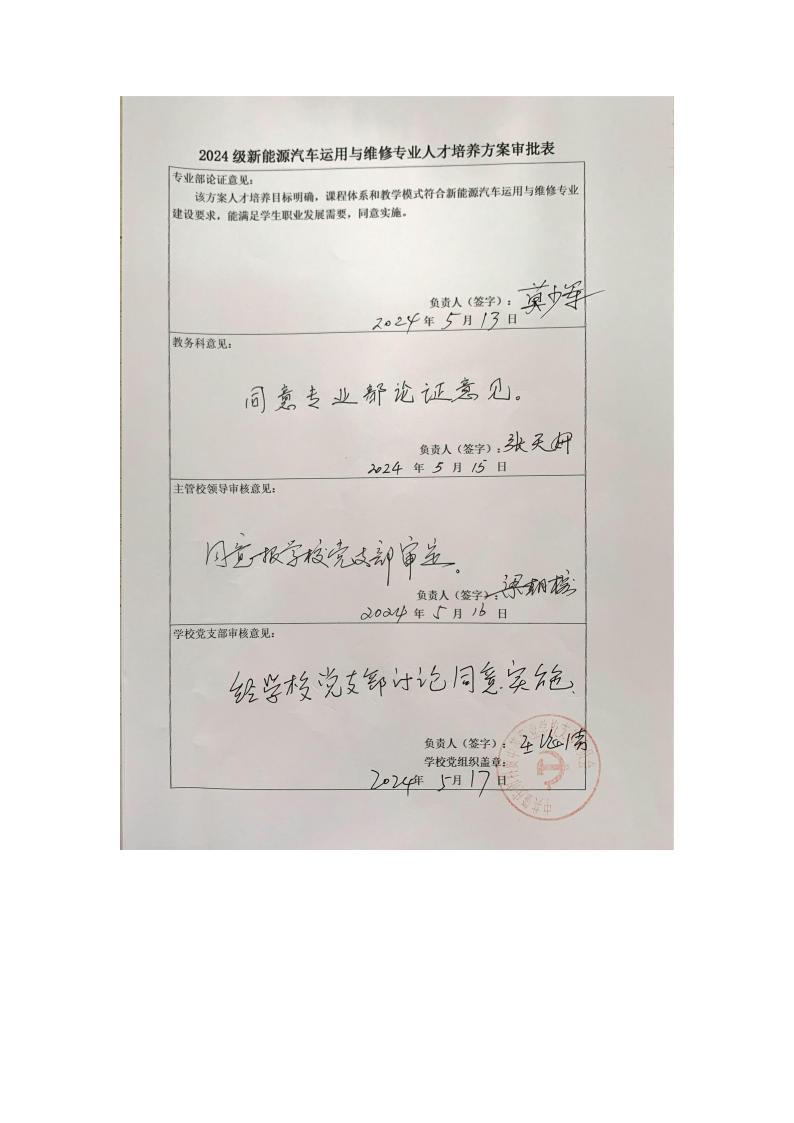 2024 级新能源汽车运用与维修专业人才培养方案审批表
专业部论证意见:
该方案人才培养目标明确，课程体系和教学模式符合新能源汽车运用与维修专业
建设要求，能满足学生职业发展需要，同意实施。
负责人（签字）: 莫少军
2024 年 5 月 13 日
教务科意见:
同意专业部论证意见。
负责人（签字）: 张天妍
2024 年 5 月 15 日
主管校领导审核意见:
同意报学校党支部审定。
负责人（签字）: 梁
2024 年 5 月 16 日
学校党支部审核意见:
经学校党支部讨论同意实施
负责人（签字）: 王
学校党组织盖章:
2024年 5月 17 日